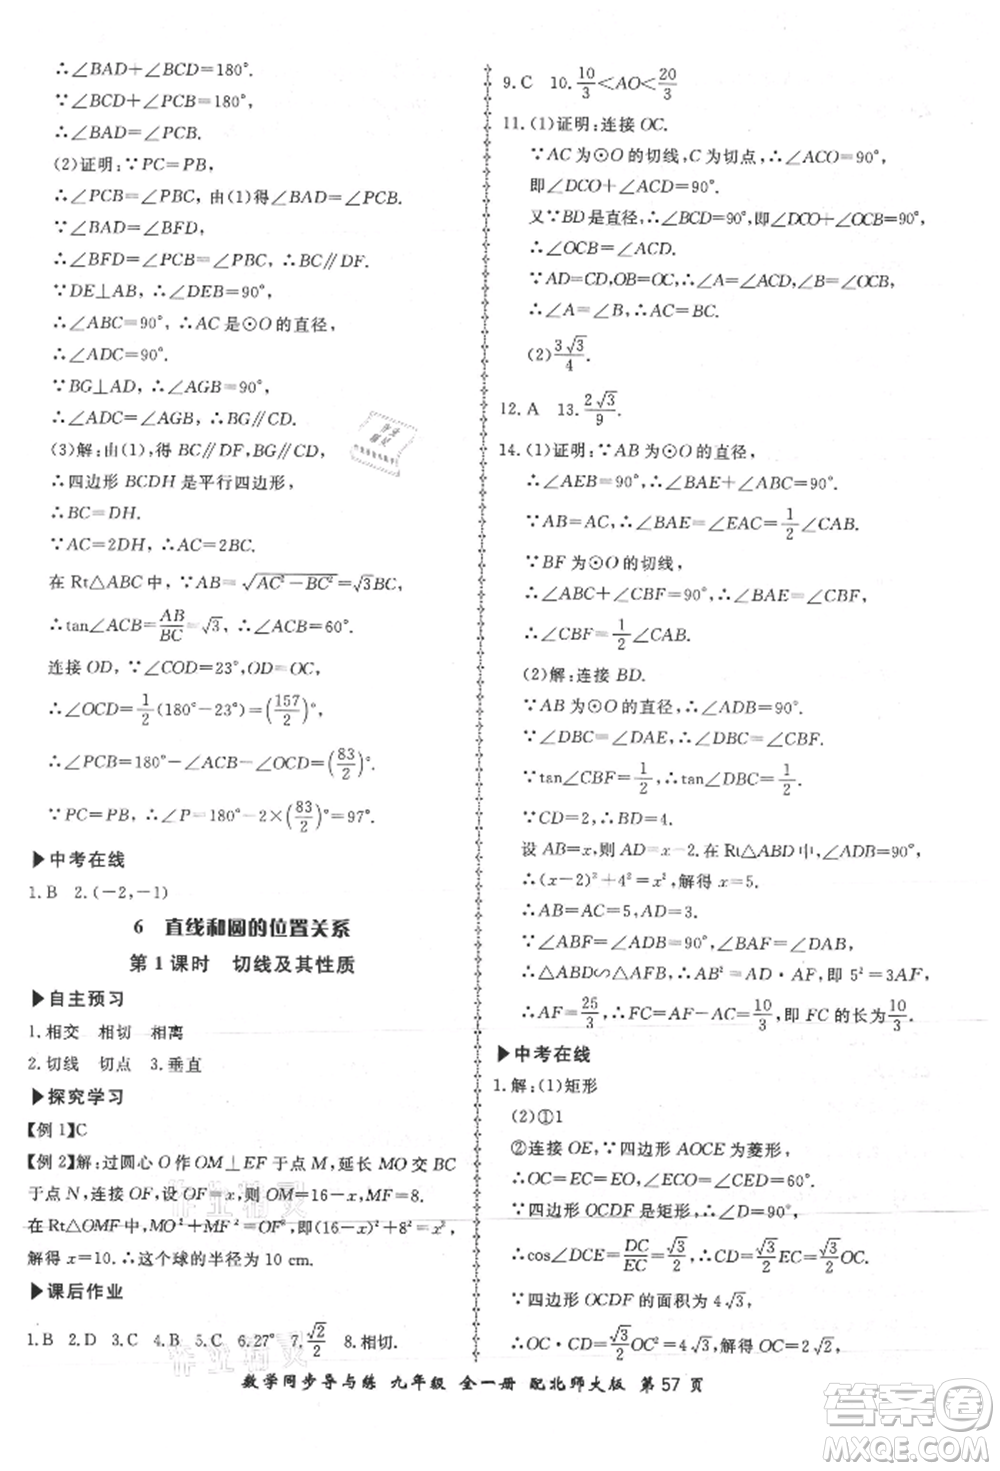 ∴∠BAD+∠BCD=180°.
∵∠BCD+∠PCB=180°,
∴∠BAD=∠PCB.
(2)证明:∵PC=PB,
∴∠PCB=∠PBC,由(1)得∠BAD=∠PCB.
∵∠BAD=∠BFD,
∴∠BFD=∠PBC,∴BC∥DF.
∵DE⊥AB,∴∠DEB=90°,
∴∠ABC=90°,∴AC是⊙O的直径,
∴∠ADC=90°.
∵BG⊥AD,∴∠AGB=90°,
∴∠ADC=∠AGB,∴BG∥CD.
(3)解:由(1),得BC∥DF,BG∥CD,
∴四边形BCDH是平行四边形,
∴BC=DH.
∵AC=2DH,∴AC=2BC.
在Rt△ABC中,∵AB=√(AC²-BC²)=√3BC,
∴tan∠ACB=AB/BC=√3,∴∠ACB=60°.
连接OD,∵∠COD=23°,OD=OC,
∴∠OCD=1/2(180°-23°)=(157/2)°,
∴∠PCB=180°-60°-(157/2)°=(83/2)°,
∵PC=PB,∴∠P=180°-2×(83/2)°=97°.
▶中考在线
1.B 2.(-2,-1)
6 直线和圆的位置关系
第1课时 切线及其性质
▶自主预习
1.相交 相切 相离
2.切线 切点 3.垂直
▶探究学习
【例1】C
【例2】解:过圆心O作OM⊥EF于点M,延长MO交BC
于点N,连接OF,设OF=x,则OM=16-x,MF=8.
在Rt△OMF中,MO²+MF²=OF²,即(16-x)²+8²=x²,
解得x=10.∴这个球的半径为10 cm.
▶课后作业
1.B 2.D 3.C 4.B 5.C 6.27° 7.√2/2 8.相切.
9.C 10.10/3<AO<20/3
11.(1)证明:连接OC.
∵AC为⊙O的切线,C为切点,∴∠ACO=90°,
即∠DCO+∠ACD=90°.
又∵BD是直径,∴∠BCD=90°,即∠DCO+∠OCB=90°,
∴∠OCB=∠ACD.
∵AD=CD,OB=OC,∴∠A=∠ACD,∠B=∠OCB,
∴∠A=∠B.
(2)3√3/4.
12.A 13.2√3/9.
14.(1)证明:∵AB为⊙O的直径,
∴∠AEB=90°,∴∠BAE+∠ABC=90°.
∵AB=AC,∴∠BAE=∠EAC=1/2∠BAC.
∵BF为⊙O的切线,
∴∠ABC+∠CBF=90°,∴∠BAE=∠CBF,
∴∠CBF=1/2∠BAC.
(2)解:连接BD.
∵AB为⊙O的直径,∴∠ADB=90°.
∵∠DBC=∠DAE,∴∠DBC=∠CBF.
∵tan∠CBF=1/2,∴tan∠DBC=1/2.
∵CD=2,∴BD=4.
设AB=x,则AD=x-2.在Rt△ABD中,∠ADB=90°,
∴(x-2)²+4²=x²,解得x=5.
∴AB=5,AD=3.
∵∠ABF=∠ADB=90°,∠BAF=∠DAB,
∴△ABD∽△AFB,∴AB²=AD·AF,即5²=3AF,
∴AF=25/3,∴FC=AF-AC=10/3,即FC的长为10/3.
▶中考在线
1.解:(1)矩形
(2)①1
②连接OE,∵四边形AOCE为菱形,
∴OC=CE=OE,∴∠OCE=60°.
∵四边形OCDF是矩形,∴∠D=90°,
∴cos∠DCE=DC/EC=√3/2,∴CD=√3/2EC=√3/2OC.
∵四边形OCDF的面积为4√3,
∴OC·CD=√3/2OC²=4√3,解得OC=2√2.
数学同步导与练 九年级 全一册 配北师大版 第57页
答案圈
MXQE.COM
作业精灵